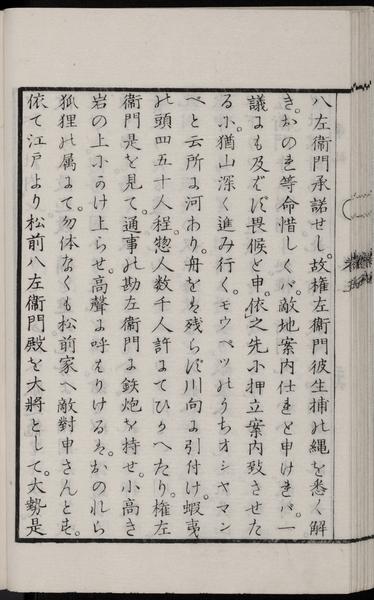 八左衞門承諾せし。故権左衞門彼生捕の縄を悉く解
き。おのれ等命惜しくバ。敵地案内仕れと申けれバ。一
議にも及ばず畏候と申。依之先に押立案内致させた
る。小猶山深く進み行く。モウベツのうちオシヤマン
べと云所に河わり。舟をも残らず川向に引付け。蝦夷
の頭四五十人程。惣人数千人許にてひかへたり。権左
衞門是を見て。通事の勘左衞門に鉄炮を持せ。小高き
岩の上にかけ上らせ。高聲に呼はりけるは。おのれら
狐狸の属にて。勿体なくも松前家へ敵對申さんとも。
依て江戸より松前八左衞門殿を大将として。大勢是